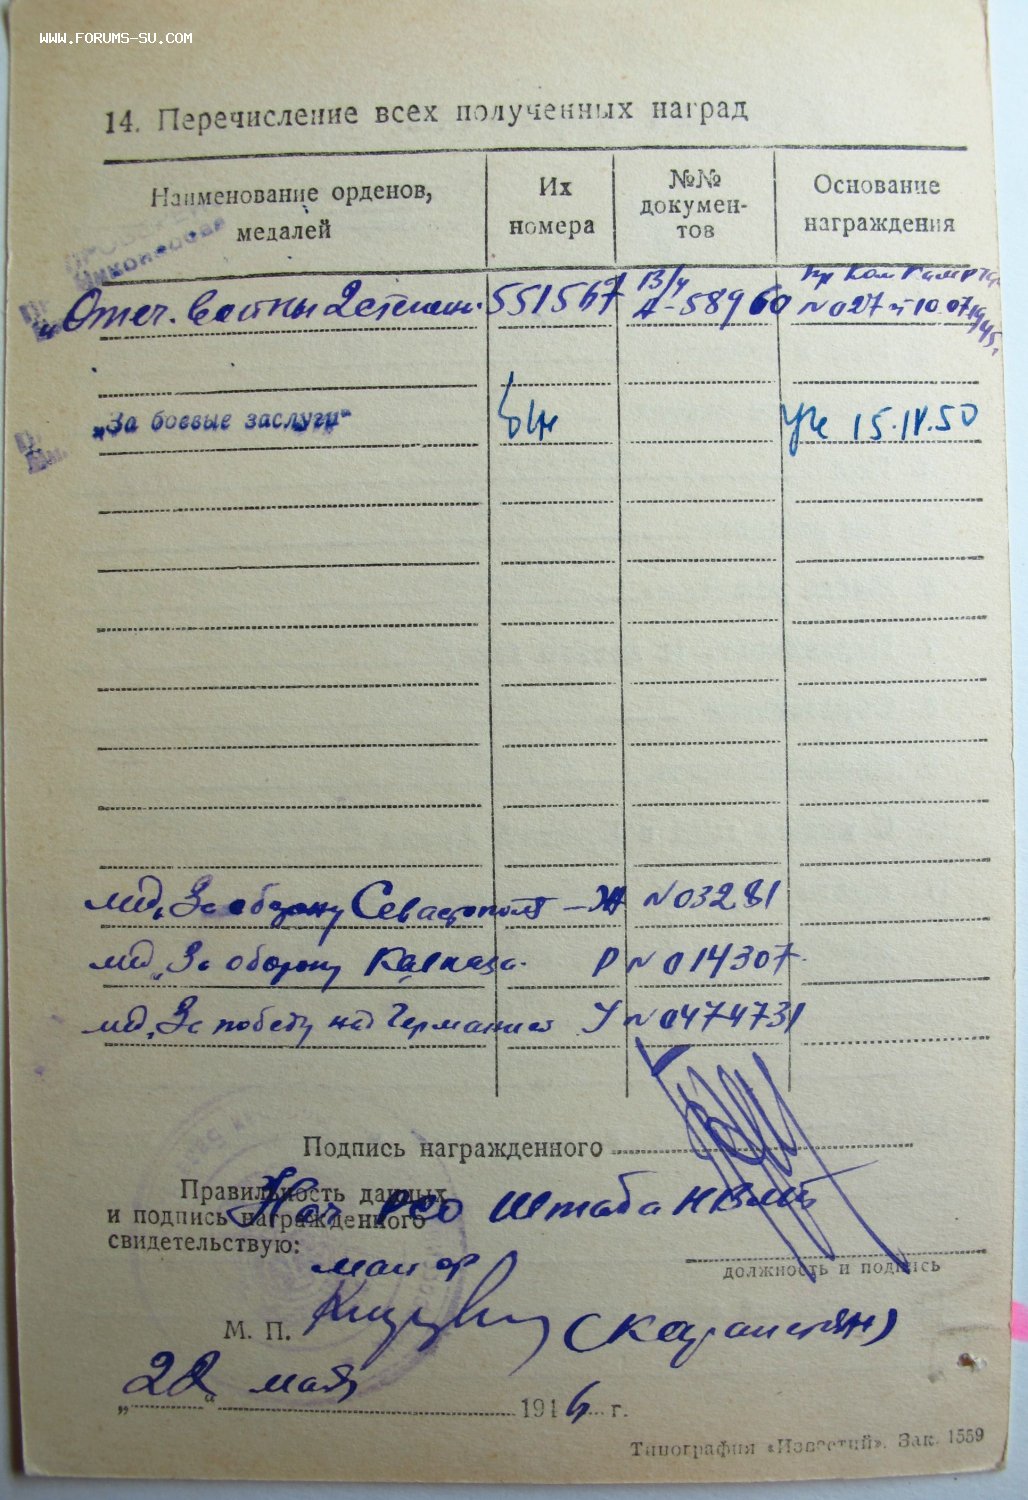 WWW.FORUMS-SU.COM
14. Перечисление всех полученных наград
Наименование орденов, медалей
Их номера
№№ документов
Основание награждения
Отеч. Войны 2 степени 551567 В/ч А-58960 пр Ком
№027 от 10.07.1945г.
„За боевые заслуги“ б/н Ук 15.IV.50
мед. „За оборону Севастополя – Ж №03281
мед. „За оборону Кавказа. Р №014307
мед. „За победу над Германией У №0474731
Подпись награжденного
Правильность данных
и подпись награжденного
свидетельствую:
Нач РСО Штаба
должность и подпись
майор
М. П.
„22“ мая 1946 г.
Типография «Известий». Зак. 1559